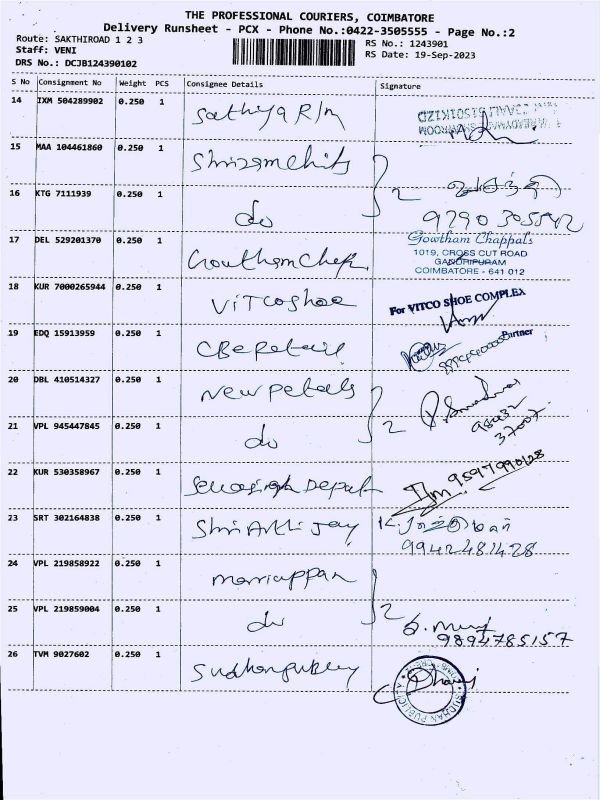 THE PROFESSIONAL COURIERS, COIMBATORE
Delivery Runsheet - PCX - Phone No.:0422-3505555 - Page No.:2
Route: SAKTHIROAD 1 2 3
RS No.: 1243901
Staff: VENI
RS Date: 19-Sep-2023
DRS No.: DCJB124390102
S No Consignment No Weight PCS Consignee Details Signature
14 IXM 504289902 0.250 1 Sathya R/m
15 MAA 104461860 0.250 1
16 KTG 7111939 0.250 1 do 2
17 DEL 529201370 0.250 1
Gowtham Chappals
1019, CROSS CUT ROAD
GANDHIPURAM
COIMBATORE - 641 012
18 KUR 7000265944 0.250 1 Vitcoshoe
For VITCO SHOE COMPLEX
Partner
19 EDQ 15913959 0.250 1 CBE retail
20 DBL 410514327 0.250 1 New petals
21 VPL 945447845 0.250 1 do 2
22 KUR 530358967 0.250 1
9597990128
23 SRT 302164838 0.250 1
9942481428
24 VPL 219858922 0.250 1 marriappan
25 VPL 219859004 0.250 1 do 2
9894785157
26 TVM 9027602 0.250 1